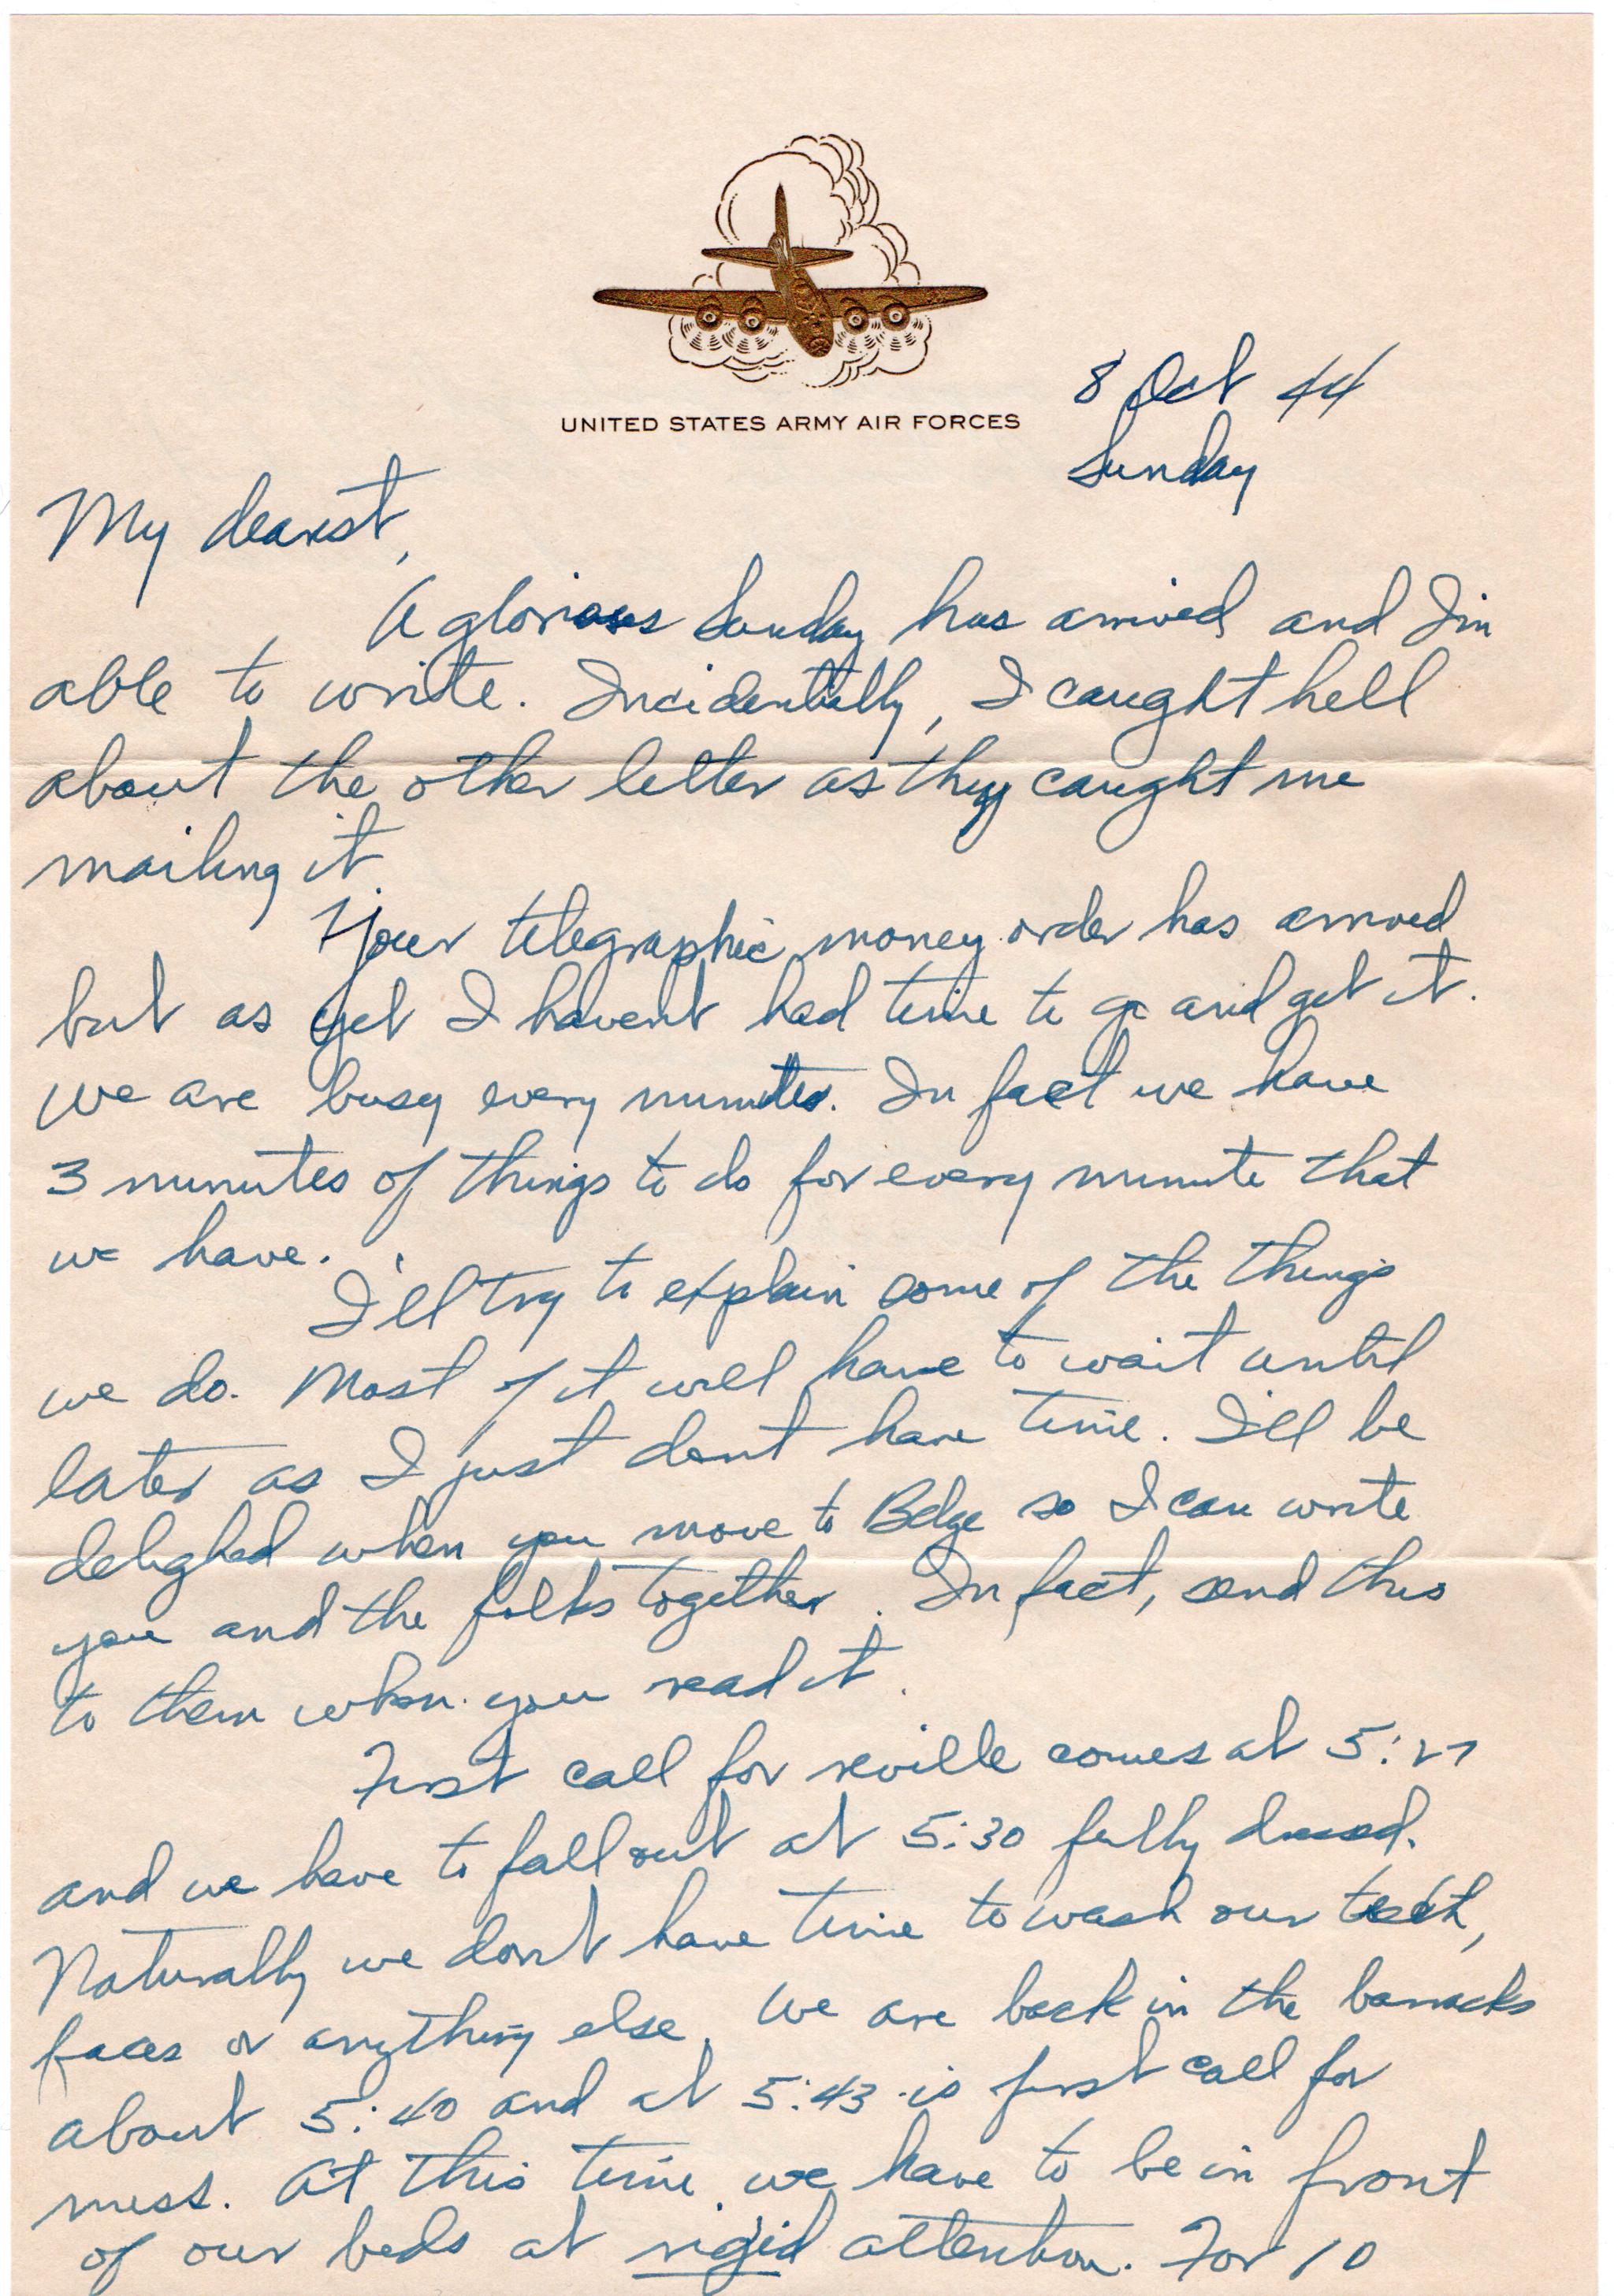 UNITED STATES ARMY AIR FORCES
8 Oct 44
Sunday
My dearest,
A glorious Sunday has arrived and I'm
able to write. Incidentally, I caught hell
about the other letter as they caught me
mailing it
Your telegraphic money order has arrived
but as yet I havent had time to go and get it.
We are busy every minutes. In fact we have
3 minutes of things to do for every minute that
we have.
I'll try to explain some of the things
we do. Most of it will have to wait until
later as I just dont have time. I'll be
delighed when you move to Belge so I can write
you and the folks together. In fact, send this
to them when you read it.
First call for reville comes at 5:27
and we have to fall out at 5:30 fully dressed.
Naturally we don't have time to wash our teeth,
faces or anything else. We are back in the barracks
about 5:40 and at 5:43 is first call for
mess. At this time we have to be in front
of our beds at rigid attention. For 10